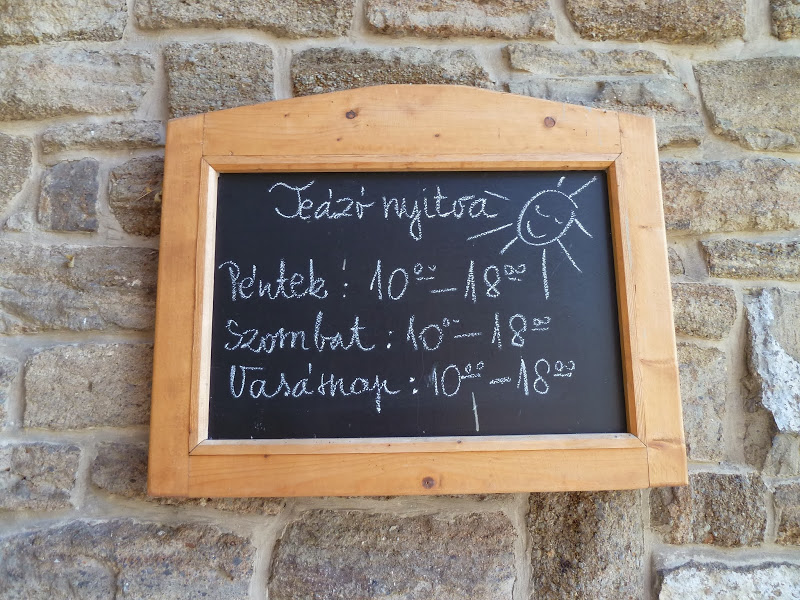 Teázó nyitva
Péntek: 10⁰⁰-18⁰⁰
Szombat: 10⁰⁰-18⁰⁰
Vasárnap: 10⁰⁰-18⁰⁰